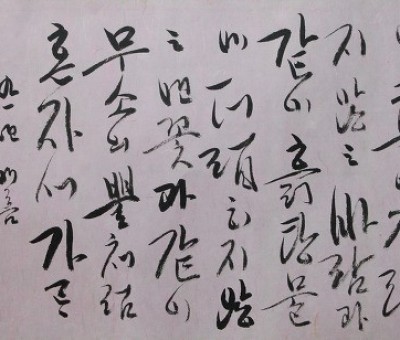 지 않는 바람과
같이 흙탕물
에 더럽히지 않
는 연꽃과 같이
무소의 뿔처럼
혼자서 가라